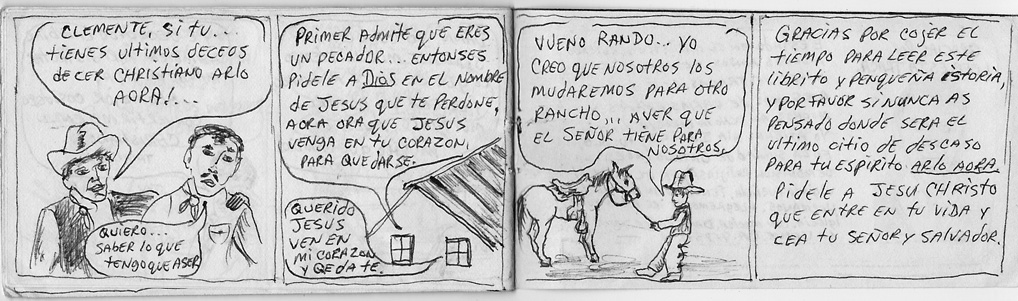 CLEMENTE, SI TU...
TIENES ULTIMOS DECEOS
DE CER CHRISTIANO ARLO
AORA!...
QUIERO...
SABER LO QUE
TENGO QUE ASER
PRIMER ADMITE QUE ERES
UN PECADOR... ENTONSES
PIDELE A DIOS EN EL NOMBRE
DE JESUS QUE TE PERDONE,
AORA ORA QUE JESUS
VENGA EN TU CORAZON,
PARA QUEDARSE.
QUERIDO
JESUS
VEN EN
MI CORAZON
Y QEDATE.
VUENO RANDO... YO
CREO QUE NOSOTROS LOS
MUDAREMOS PARA OTRO
RANCHO,,, AVER QUE
EL SEÑOR TIENE PARA
NOSOTROS.
GRACIAS POR COJER EL
TIEMPO PARA LEER ESTE
LIBRITO Y PENQUEÑA ISTORIA,
Y POR FAVOR SI NUNCA AS
PENSADO DONDE SERA EL
ULTIMO CITIO DE DESCASO
PARA TU ESPIRITO ARLO AORA.
PIDELE A JESU CHRISTO
QUE ENTRE EN TU VIDA Y
CEA TU SEÑOR Y SALVADOR.